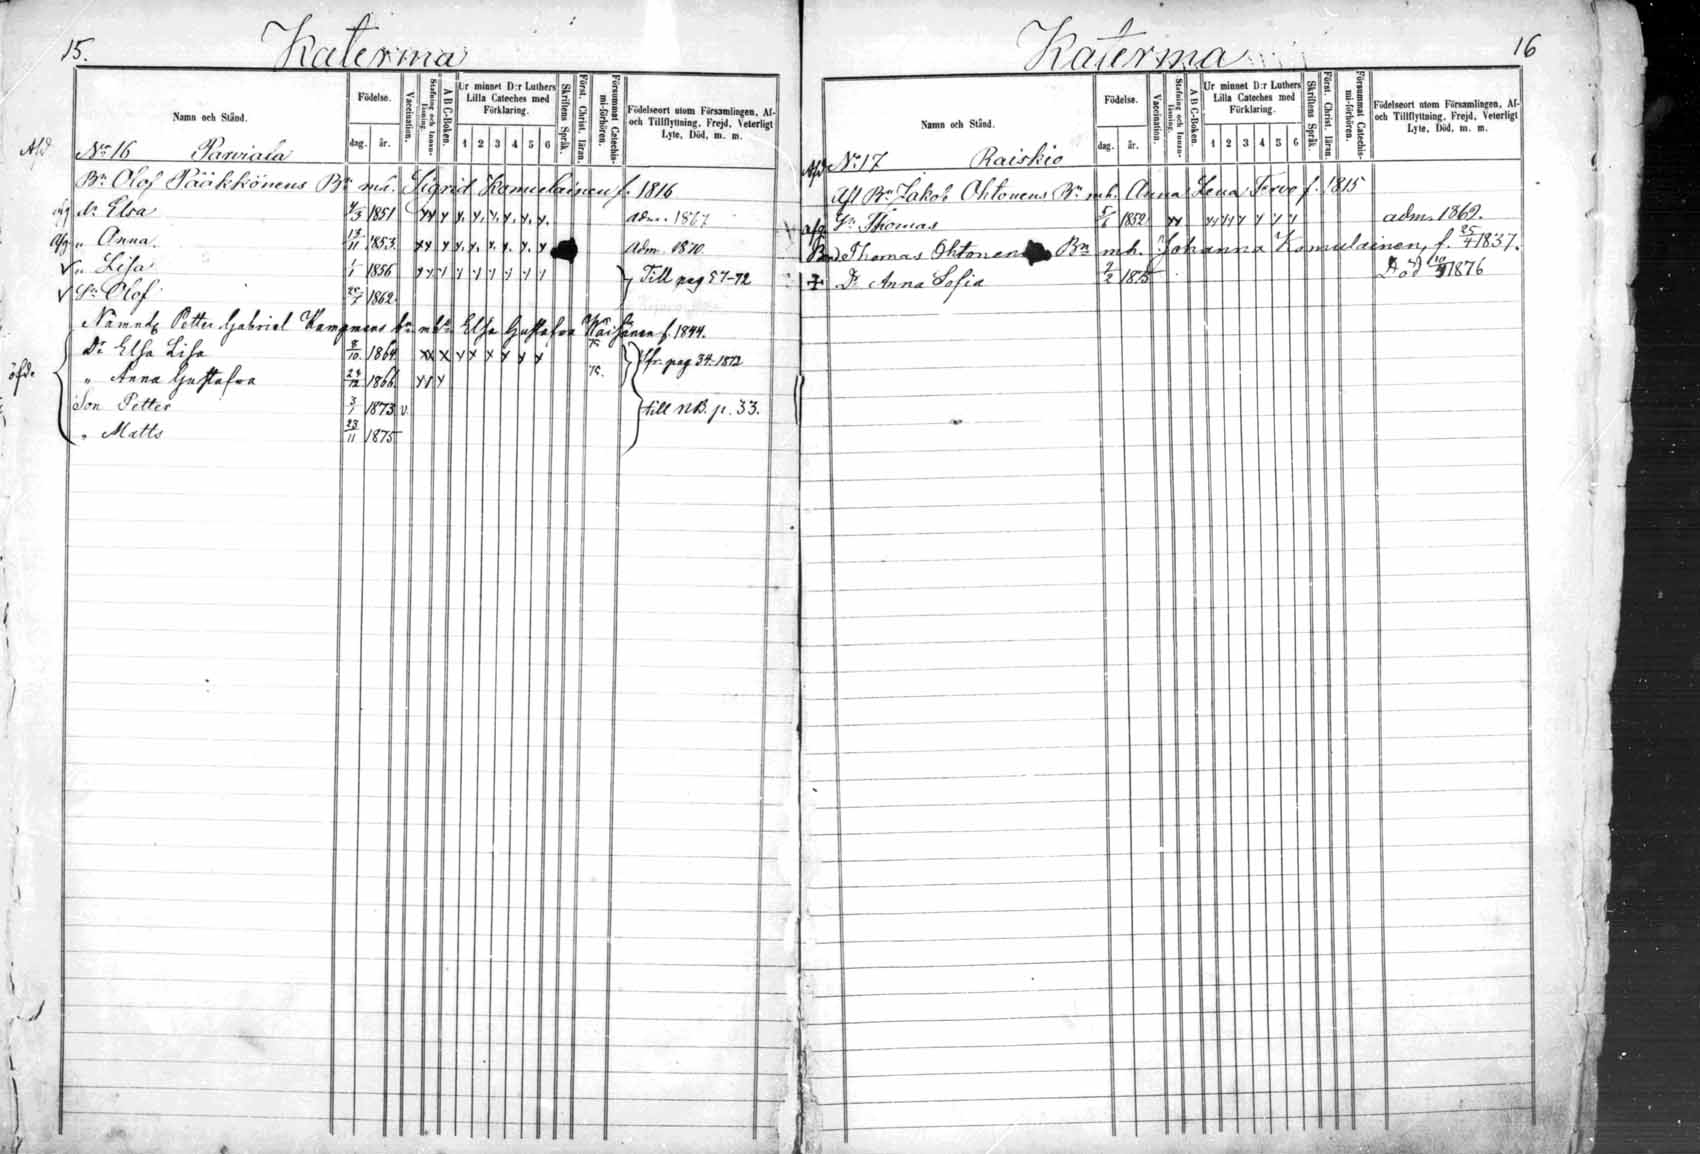 15.
Katerma
Namn och Stånd.
Födelse.
dag.
år.
Vaccination.
Stafning och Innan-läsning.
A B C-Boken.
Ur minnet D:r Luthers Lilla Cateches med Förklaring.
1 2 3 4 5 6
Skriftens Språk.
Först. Christ. läran.
Försummat Catechis-mi-förhören.
Födelseort utom Församlingen, Af- och Tillflyttning, Frejd, Veterligt Lyte, Död, m. m.
Afd No 16 Parviala
Bn Olof Pääkkönens Bn md. Sigrid Kamulainen f. 1816
Dr Elsa 1851 adm. 1867
Afg " Anna 13/11 1853 adm. 1870.
" Lisa 1/1 1856 Till pag 57-72
Sn Olof 1862
Petter Gabriel Elsa Gustafva f. 1844.
Dr Elsa Lisa 8/10 1864 fr. pag 34-1872
" Anna Gustafva 1866
Son Petter 3/1 1873 v. till NB. p. 33.
" Matts 23/11 1875
16
Katerma
Namn och Stånd.
Födelse.
dag.
år.
Vaccination.
Stafning och Innan-läsning.
A B C-Boken.
Ur minnet D:r Luthers Lilla Cateches med Förklaring.
1 2 3 4 5 6
Skriftens Språk.
Först. Christ. läran.
Försummat Catechis-mi-förhören.
Födelseort utom Församlingen, Af- och Tillflyttning, Frejd, Veterligt Lyte, Död, m. m.
Afd No 17 Raiskio
Afl Bn Jakob Ohtonens Bn mh. Anna Lena f. 1815
afg Sn Thomas 1852 adm. 1869.
Bn Thomas Ohtonen Bn mh. Johanna Komulainen, f. 25/4 1837.
Dr Anna Sofia 2/2 1875 Död 1876